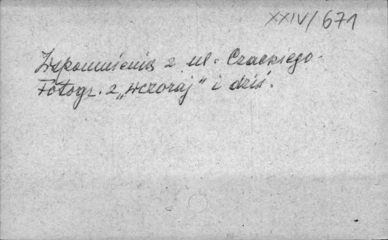 XXIV/671
Wspomnienia z ul. Czackiego.
Fotogr. z „wczoraj" i dziś.